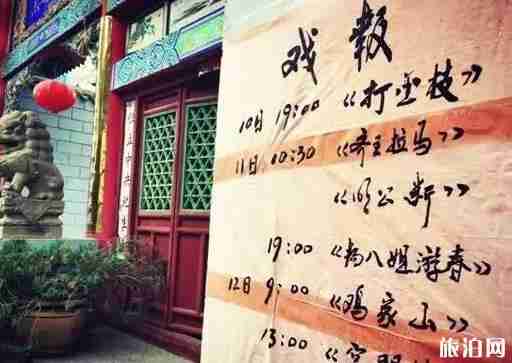 戏报
10日 19:00 《打金枝》
11日 10:30 《齐王拉马》
《明公断》
19:00 《杨八姐游春》
12日 9:00 《鸡家山》
13:00
旅泊网